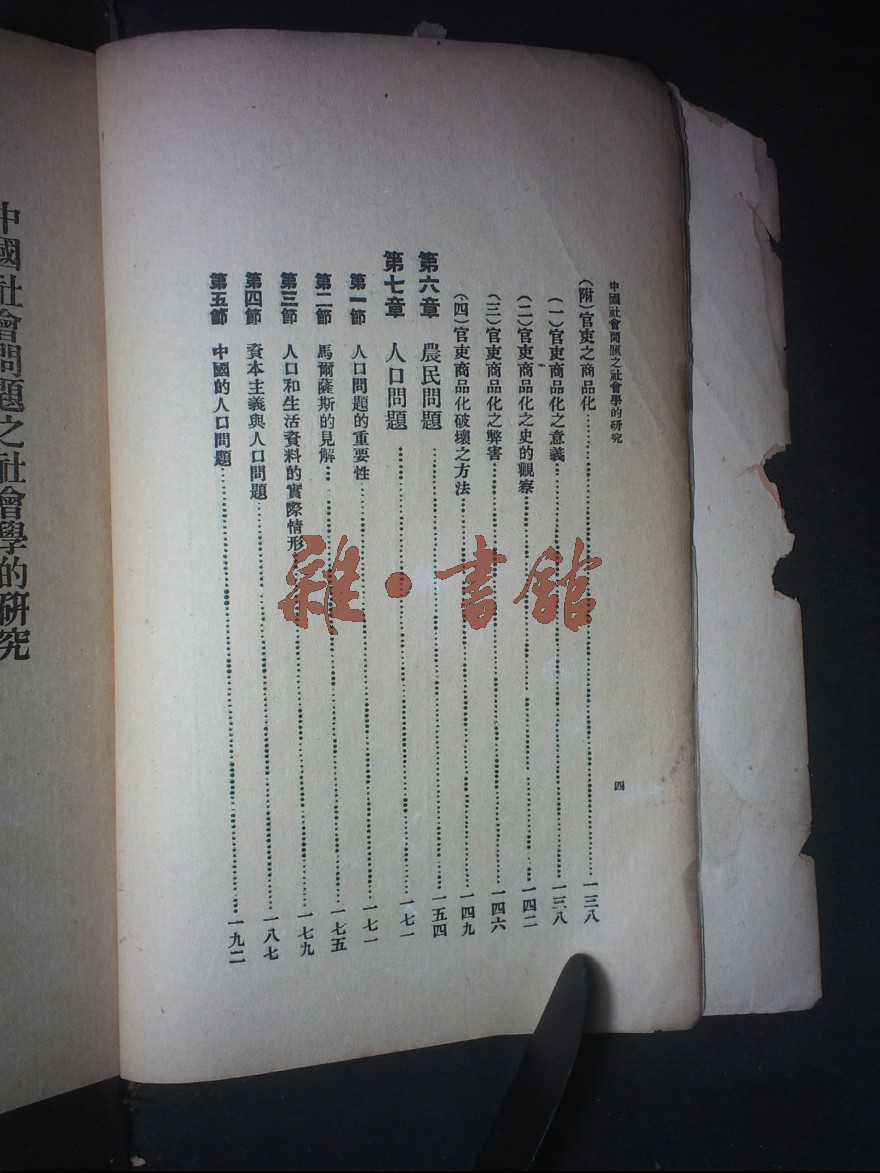 中國社會問題之社會學的研究
四
(附)官吏之商品化……一三八
(一)官吏商品化之意義……一三八
(二)官吏商品化之史的觀察……一四二
(三)官吏商品化之弊害……一四六
(四)官吏商品化破壞之方法……一四九
第六章 農民問題……一五四
第七章 人口問題……一七一
第一節 人口問題的重要性……一七一
第二節 馬爾薩斯的見解……一七五
第三節 人口和生活資料的實際情形……一七九
第四節 資本主義與人口問題……一八七
第五節 中國的人口問題……一九二
中國社會問題之社會學的研究
雜·書館